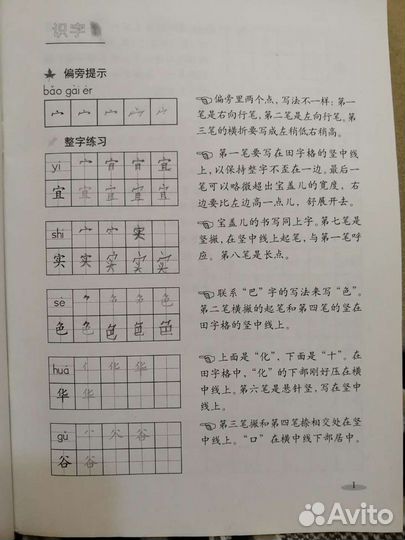 识字
偏旁提示
bǎo gài ér
宀 宀 宀 宀 宀
偏旁里两个点，写法不一样：第一
笔是右向行笔，第二笔是左向行笔。第
三笔的横折要写成左稍低右稍高。
整字练习
yí
宜
第一笔要写在田字格的竖中线
上，以保持整字不歪在一边。最后一
笔可以略微超出宝盖儿的宽度，右
边要比左边高一点儿，舒展开去。
shí
实
宝盖儿的书写同上字。第七笔是
竖撇，在竖中线上起笔，与第一笔呼
应。第八笔是长点。
sè
色
联系“巴”字的写法来写“色”。
第二笔横撇的起笔和第四笔的竖在
田字格的竖中线上。
huá
华
上面是“化”，下面是“十”。在
田字格中，“化”的下部刚好压在横
中线上。第六笔是悬针竖，写在竖中
线上。
gǔ
谷
第三笔撇和第四笔捺相交处在竖
中线上。“口”在横中线下部居中。
1
Avito